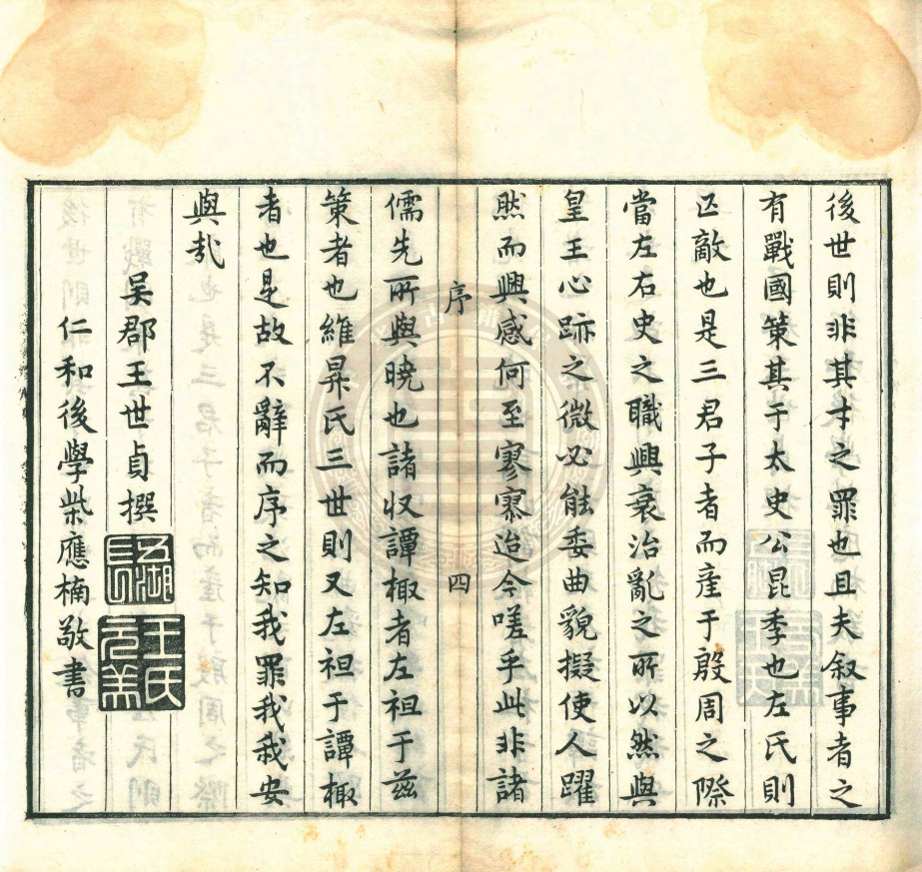 後世則非其才之罪也且夫叙事者之
有戰國策其于太史公昆季也左氏則
匹敵也是三君子者而産于殷周之際
當左右史之職興衰治亂之所以然與
皇王心跡之微必能委曲貌擬使人躍
然而興感何至寥寥迨今嗟乎此非諸
序 四
儒先所與曉也諸収譚棷者左袒于茲
策者也維昇氏三世則又左袒于譚棷
者也是故不辭而序之知我罪我我安
與㢤
吴郡王世貞撰
五湖長
王氏元美
仁和後學柴應楠敬書